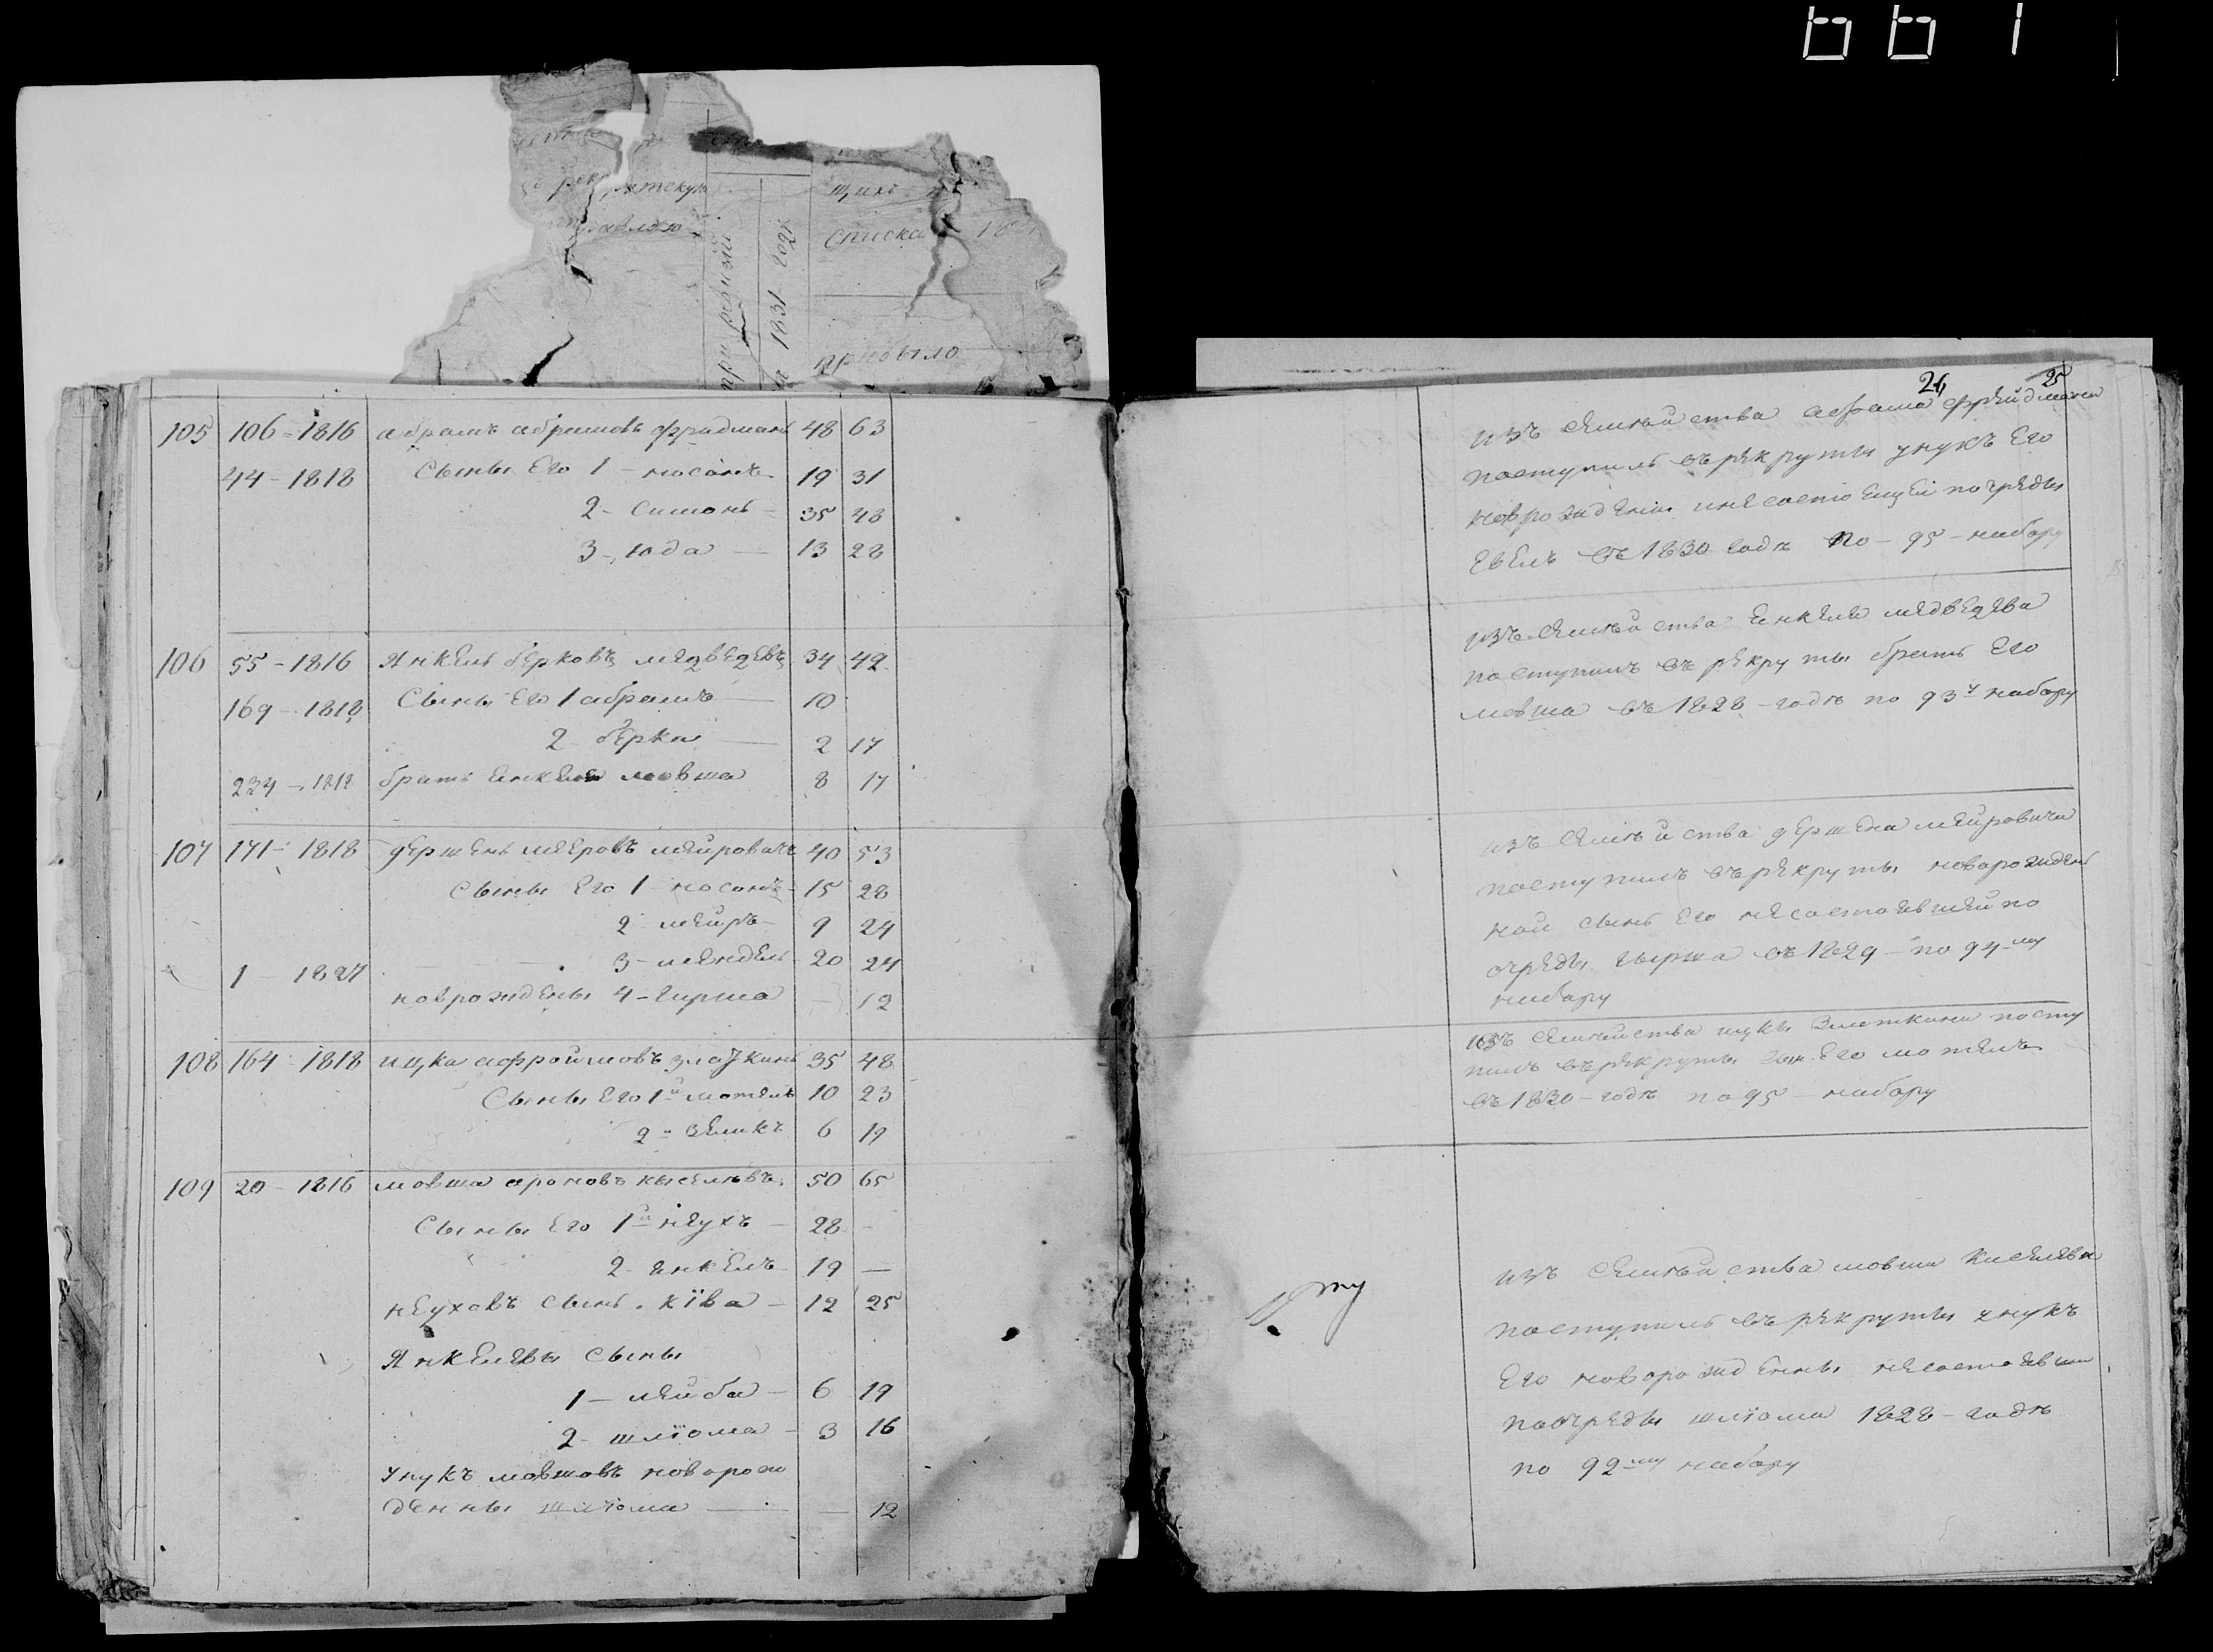 661
рекрутскую
при ревизии
1831 года
щихъ
списка 18
прибыло
105 106-1816 абрамъ абрамовъ фрадманъ 48 63
44-1818 Сыны Его 1-носонъ 19 31
2-симонъ 35 48
3-юда 13 28
106 55-1816 Янкель берковъ медведевъ 34 49
169-1818 Сыны Его 1 абрамъ 10
2 берка 2 17
224-1818 братъ Енкеля мовша 8 17
107 171-1818 гершень мееровъ меировичъ 40 53
Сыны Его 1-носонъ 15 28
2 меиръ 9 24
1-1827 3-мендель 20 24
новрождены 4-гирша - 12
108 164-1818 ицка афроимовъ злоткинъ 35 48
Сыны Его 1й мотель 10 23
2й зеликъ 6 19
109 20-1816 мовша ароновъ кыселювъ 50 65
Сыны Его 1й неухъ - 28 -
2-янкель 19 —
неуховъ сынъ кїва - 12 25
Янкелевы сыны
1-лейба - 6 19
2-шлїома - 3 16
унукъ мовшовъ новорож
денны шлїома — — 12
24 25
изъ семѣйства абрама фрейдмана
поступилъ въ рекруты унукъ Его
новрожденїи несостоещеи почреды
евель въ 1830 годѣ по-95-набору
изъ семѣйства Енкеля медведева
поступилъ въ рекруты братъ Его
мовша въ 1828-годѣ по 93у набору
изъ семѣйства гершена меировича
поступилъ въ рекруты новорожден
ной сынъ Его несостоевшей по
очреды гырша въ 1829-по 94-му
набору
изъ семѣйства ицкы Злоткина посту
пилъ въ рекруты сын Его мотель
въ 1830-годѣ по 95-набору
изъ семѣйства мовши Киселева
поступилъ въ рекруты унукъ
Его новорожденны несостоевши
поочреды шлїома 1828-годѣ
по 92-му набору